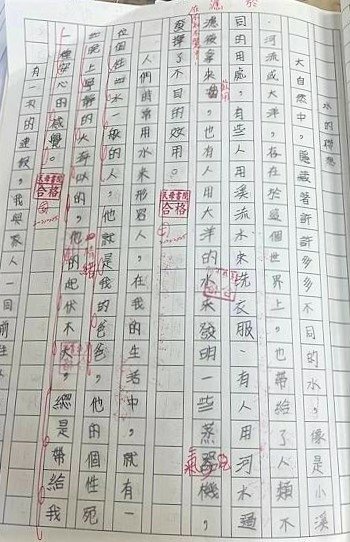 水的聯想
大自然中，隱藏著許許多多不同的水，像是小溪
、河流或大洋，存在於這個世界上，也帶給了人類不
同的用處，有些人用溪流水來洗衣服、有人用河水過
濾後拿來，也有人用大洋的水來發明一些蒸機，
發揮了不同的效用。
合格
人們時常用水來形容人，在我的生活中，就有一
位個性如水一般的人，他就是我的爸爸，他的個性宛
如晚上寧靜的大海似的，他的起伏不大，總是帶給我
情緒
一種安心的感覺。
合格
有一次的連假，我與家人一同前